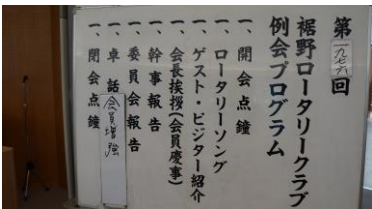 第一九七六回
裾野ロータリークラブ
例会プログラム
一、開会点鐘
一、ロータリーソング
一、ゲスト・ビジター紹介
会長挨拶(会員慶事)
一、幹事報告
一、委員会報告
一、卓話 会員増強
一、閉会点鐘